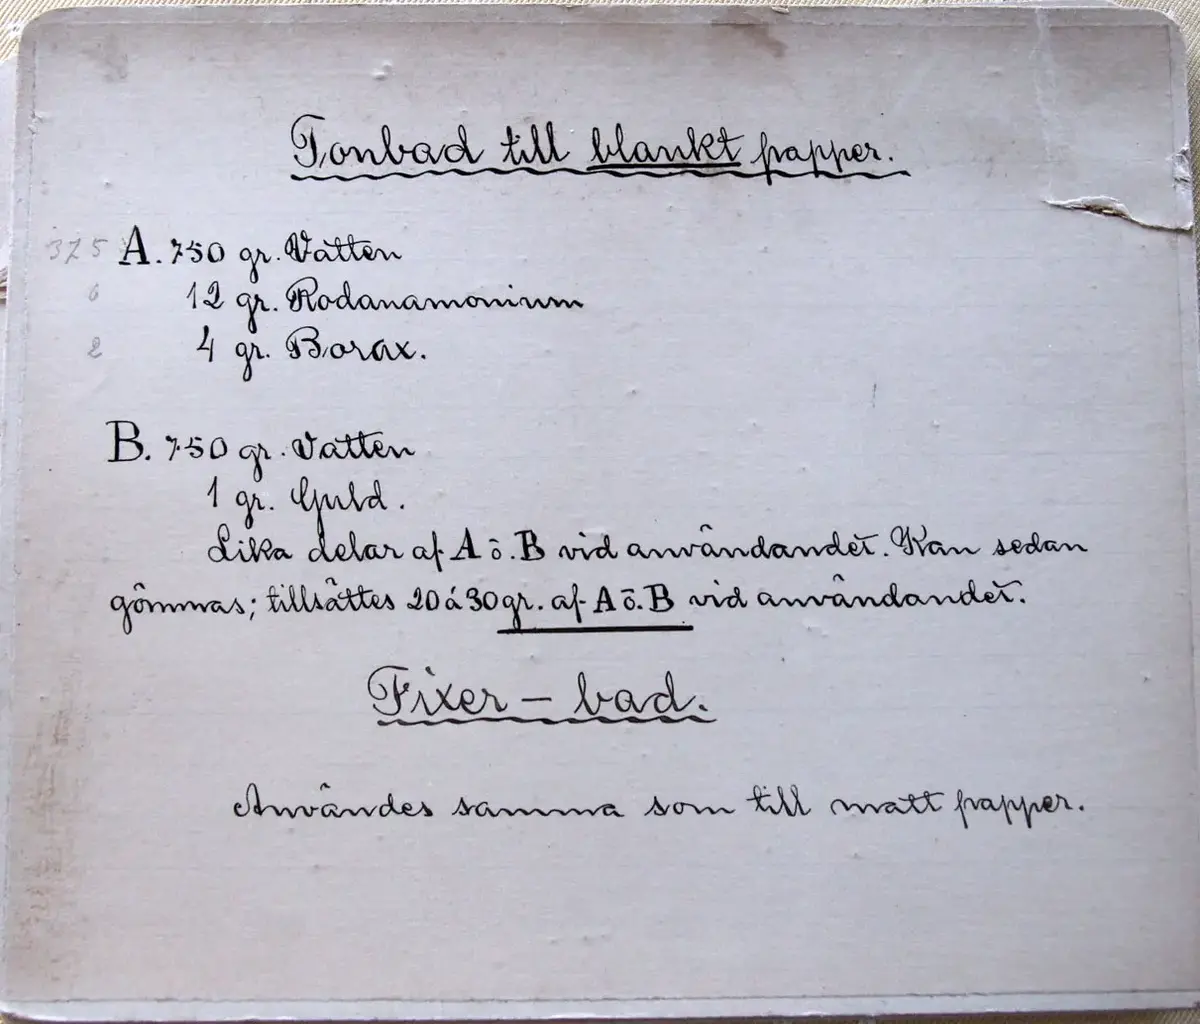 Tonbad till blankt papper.
375 A. 750 gr. Vatten
6 12 gr. Rodanamonium
2 4 gr. Borax.
B. 750 gr. Vatten
1 gr. Guld.
Lika delar af A ō. B vid användandet. Kan sedan
gömmas; tillsättes 20 á 30 gr. af A ō. B vid användandet.
Fixer - bad.
Användes samma som till matt papper.